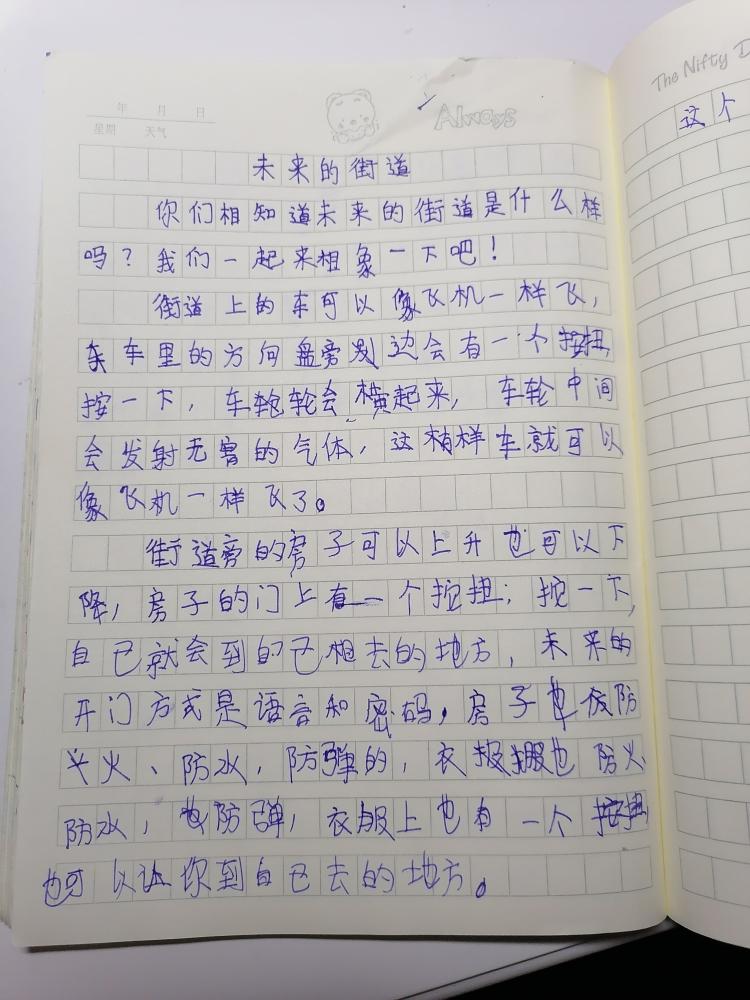 The Nifty D
年 月 日
星期 天气
Always
这个
未来的街道
你们相知道未来的街道是什么样
吗?我们一起来相象一下吧!
街道上的车可以像飞机一样飞,
车里的方向盘旁边会有一个按扭,
按一下,车轮会横起来,车轮中间
会发射无害的气体,这样车就可以
像飞机一样飞了。
街道旁的房子可以上升也可以下
降,房子的门上有一个按扭;按一下,
自己就会到自己想去的地方,未来的
开门方式是语音和密码,房子也防
火、防水,防弹的,衣服也防火、
防水,也防弹,衣服上也有一个按扭
也可以让你到自己去的地方。